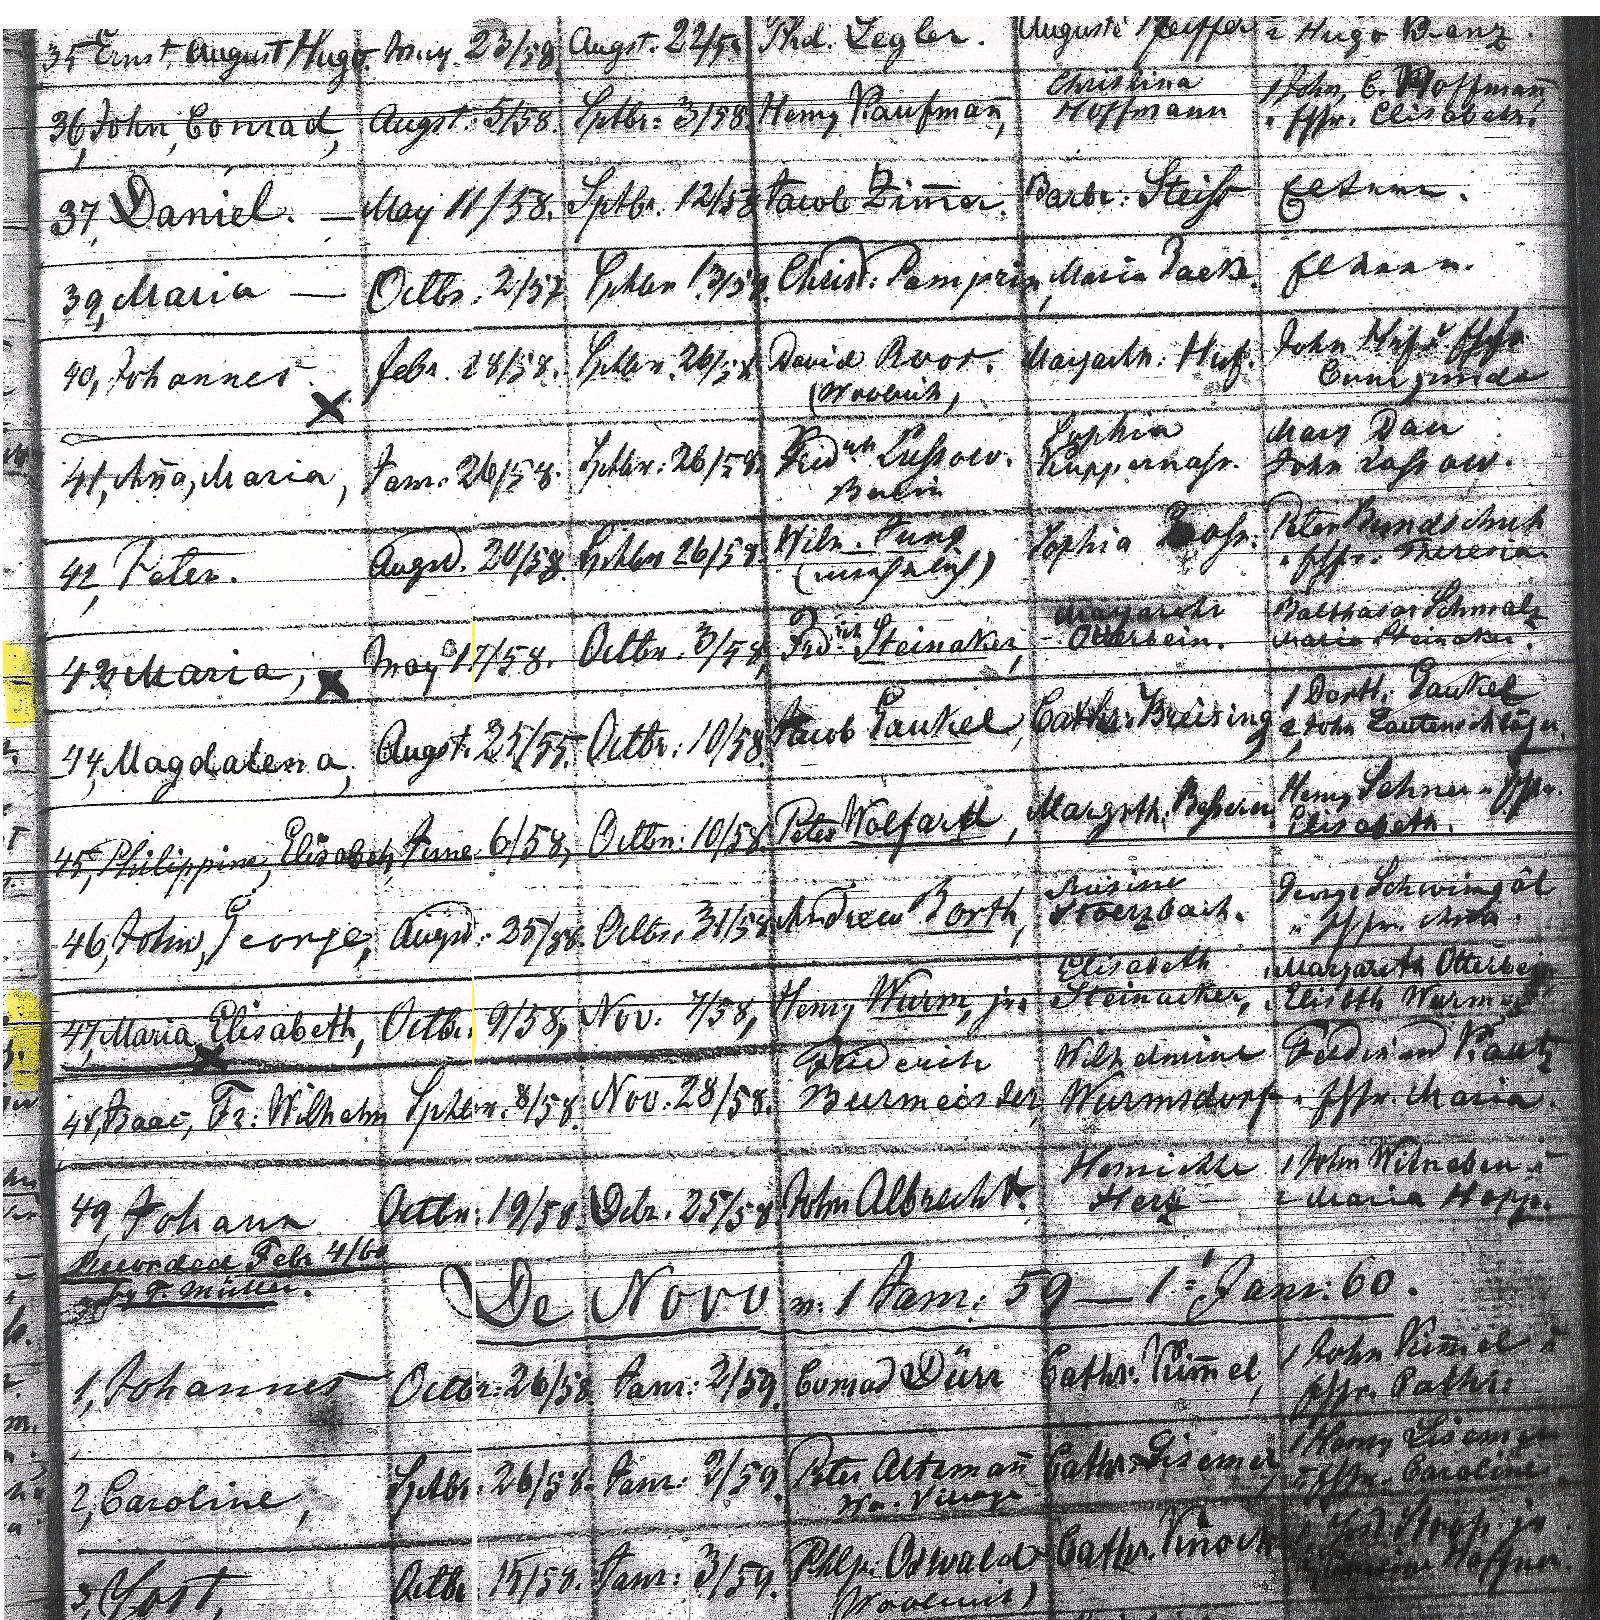 35 Ernst, August Hugo. May 23/58 Augst. 22/58 Phil. Legler. Auguste Pfeiffer 2 Hugo Benz.
36, John, Conrad, Augst. 5/58. Sptbr. 3/58 Henry Kaufman̄, Christina Hoffmann 1 John, C. Hoffman̄ Elisabeth.
37, Daniel. — May 11/58. Sptbr. 12/58 Jacob Zim̄er. Barbr: Steiss Eltern.
39, Maria — Octbr. 2/57 Sptbr 13/58. Christ: Pamprin, Maria Jack. Eltern.
40, Johannes. Febr. 28/58. Sptbr. 26/58 David Roos. (Woolwich, Margreth: Huf. John Huf u
41, An̄a, Maria, Janr. 26/58. Sptbr. 26/58. Friedrich Lussow. Berlin Sophia Kuppernass. Mary Dau John Lussow.
42, Peter. Augst. 20/58. Sptbr 26/58. Wilh. Jung Sophia Peter Theresia.
43 Maria, May 17/58. Octbr. 3/58, Frdrich Steinaker, Margareth Otterbein. Balthasar Schmalz Maria Steinaker.
44, Magdalena, Augst. 25/55. Octbr: 10/58. Jacob Gaukel, Cathr. Breising 1 Dorth. Gaukel 2, John Lautenschläger.
45, Philippine, Elisabeth, June 6/58, Octbr: 10/58. Peter Wolfarth, Margrth. Henry Elisabeth.
46, John, George, Augst. 25/58. Octbr. 31/58 Andrew Borth, Rosine Stoerzbach. George Anna.
47, Maria, Elisabeth, Octbr. 9/58, Nov. 7/58, Henry Wurm, jr. Elisabeth Steinacker, Margareth Otterbein Elisbth Wurm
48, Isaac, Fr: Wilhelm Sptbr. 8/58. Nov. 28/58. Friederich Burmeister, Wilhelmine Wurmsdorf Ferdinand Kautz Maria.
49, Johann Octbr: 19/58. Dcbr. 25/58. John Albrecht. Henriette Herz 1 John Witneben u 2 Maria Hopp.
Recorded Febr. 4/60
by F. Müller.
De Novo v. 1 Janr: 59 — 1. Janr: 60.
1, Johannes Octbr: 26/58. Janr: 2/59. Conrad Dürr Cathr. Kim̄el, 1 John Kim̄el u Cathr:
2, Caroline, Sptbr. 26/58. Janr: 2/59. Peter Altzman̄ Wa. Village Cathr. Lisemer, 1 Henry Lisemer Caroline.
3, Jost, Octbr 15/58. Janr: 3/59. Philp: Oswald (Woolwich) Cathr. Knoch